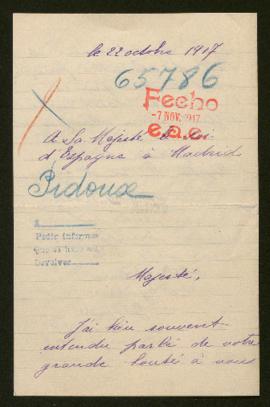 le 22 octobre 1917
65786
Fecho
-7 NOV. 1917
e.a.e.
A Sa Majesté Le Roi
d'Espagne à Madrid
Pidoux
A
Pedir informes
Devolver
Majesté,
J'ai bien souvent
entendu parlé de votre
grande bonté à vous